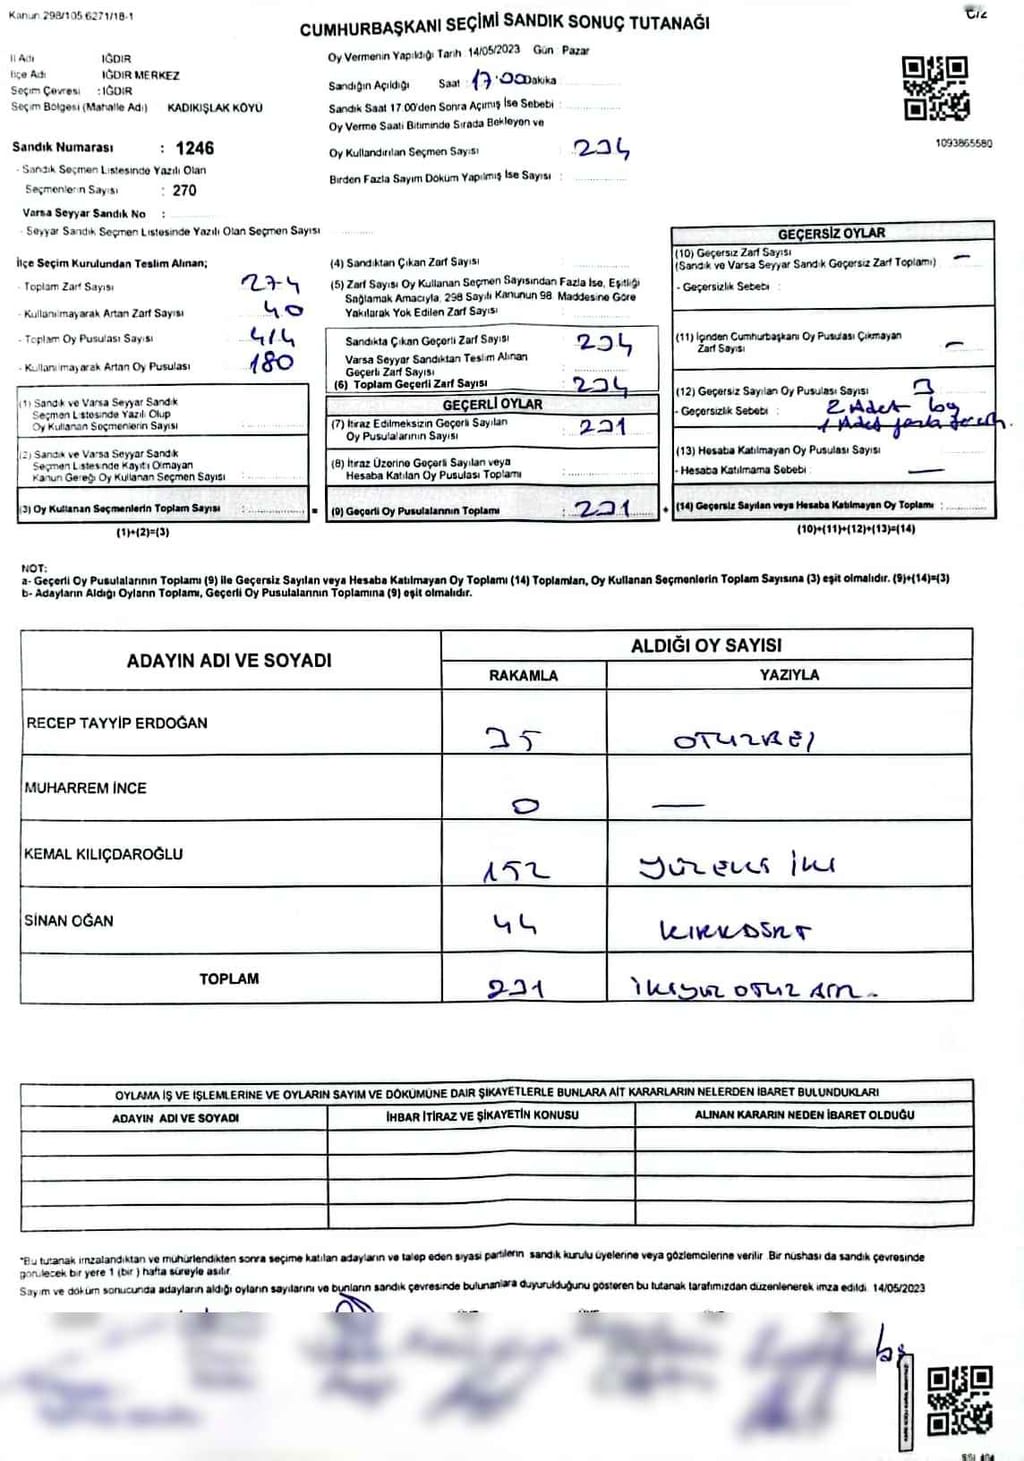 Kanun 298/105 6271/18-1
CUMHURBAŞKANI SEÇİMİ SANDIK SONUÇ TUTANAĞI
İl Adı IĞDIR
İlçe Adı IĞDIR MERKEZ
Seçim Çevresi : IĞDIR
Seçim Bölgesi (Mahalle Adı) KADIKIŞLAK KÖYÜ
Sandık Numarası : 1246
- Sandık Seçmen Listesinde Yazılı Olan
Seçmenlerin Sayısı : 270
Varsa Seyyar Sandık No :
- Seyyar Sandık Seçmen Listesinde Yazılı Olan Seçmen Sayısı
Oy Vermenin Yapıldığı Tarih 14/05/2023 Gün Pazar
Sandığın Açıldığı Saat : 17:00 Dakika
Sandık Saat 17.00'den Sonra Açımış İse Sebebi :
Oy Verme Saati Bitiminde Sırada Bekleyen ve
Oy Kullandırılan Seçmen Sayısı : 234
Birden Fazla Sayım Döküm Yapılmış İse Sayısı :
1093865580
İlçe Seçim Kurulundan Teslim Alınan;
- Toplam Zarf Sayısı 274
- Kullanılmayarak Artan Zarf Sayısı 40
- Toplam Oy Pusulası Sayısı 414
- Kullanılmayarak Artan Oy Pusulası 180
(1) Sandık ve Varsa Seyyar Sandık
Seçmen Listesinde Yazılı Olup
Oy Kullanan Seçmenlerin Sayısı
(2) Sandık ve Varsa Seyyar Sandık
Seçmen Listesinde Kayıtlı Olmayan
Kanun Gereği Oy Kullanan Seçmen Sayısı
(3) Oy Kullanan Seçmenlerin Toplam Sayısı :
(1)+(2)=(3)
(4) Sandıktan Çıkan Zarf Sayısı :
(5) Zarf Sayısı Oy Kullanan Seçmen Sayısından Fazla İse, Eşitliği
Sağlamak Amacıyla, 298 Sayılı Kanunun 98. Maddesine Göre
Yakılarak Yok Edilen Zarf Sayısı :
Sandıkta Çıkan Geçerli Zarf Sayısı : 234
Varsa Seyyar Sandıktan Teslim Alınan
Geçerli Zarf Sayısı :
(6) Toplam Geçerli Zarf Sayısı : 234
GEÇERLİ OYLAR
(7) İtiraz Edilmeksizin Geçerli Sayılan
Oy Pusulalarının Sayısı : 231
(8) İtiraz Üzerine Geçerli Sayılan veya
Hesaba Katılan Oy Pusulası Toplamı :
= (9) Geçerli Oy Pusulalarının Toplamı : 231
GEÇERSİZ OYLAR
(10) Geçersiz Zarf Sayısı
(Sandık ve Varsa Seyyar Sandık Geçersiz Zarf Toplamı) : —
- Geçersizlik Sebebi :
(11) İçinden Cumhurbaşkanı Oy Pusulası Çıkmayan
Zarf Sayısı : —
(12) Geçersiz Sayılan Oy Pusulası Sayısı : 3
- Geçersizlik Sebebi : 2 Adet boş
1 Adet fazla tercih.
(13) Hesaba Katılmayan Oy Pusulası Sayısı :
- Hesaba Katılmama Sebebi : —
+ (14) Geçersiz Sayılan veya Hesaba Katılmayan Oy Toplamı :
(10)+(11)+(12)+(13)=(14)
NOT:
a- Geçerli Oy Pusulalarının Toplamı (9) ile Geçersiz Sayılan veya Hesaba Katılmayan Oy Toplamı (14) Toplamları, Oy Kullanan Seçmenlerin Toplam Sayısına (3) eşit olmalıdır. (9)+(14)=(3)
b- Adayların Aldığı Oyların Toplamı, Geçerli Oy Pusulalarının Toplamına (9) eşit olmalıdır.
ADAYIN ADI VE SOYADI
ALDIĞI OY SAYISI
RAKAMLA YAZIYLA
RECEP TAYYİP ERDOĞAN 35 OTUZBEŞ
MUHARREM İNCE 0 —
KEMAL KILIÇDAROĞLU 152 YÜZELLİ İKİ
SİNAN OĞAN 44 KIRKDÖRT
TOPLAM 231 İKİYÜZ OTUZ
OYLAMA İŞ VE İŞLEMLERİNE VE OYLARIN SAYIM VE DÖKÜMÜNE DAİR ŞİKAYETLERLE BUNLARA AİT KARARLARIN NELERDEN İBARET BULUNDUKLARI
ADAYIN ADI VE SOYADI İHBAR İTİRAZ VE ŞİKAYETİN KONUSU ALINAN KARARIN NEDEN İBARET OLDUĞU
*Bu tutanak imzalandıktan ve mühürlendikten sonra seçime katılan adayların ve talep eden siyasi partilerin sandık kurulu üyelerine veya gözlemcilerine verilir. Bir nüshası da sandık çevresinde
görülecek bir yere 1 (bir) hafta süreyle asılır.
Sayım ve döküm sonucunda adayların aldığı oyların sayılarını ve bunların sandık çevresinde bulunanlara duyurulduğunu gösteren bu tutanak tarafımızdan düzenlenerek imza edildi. 14/05/2023